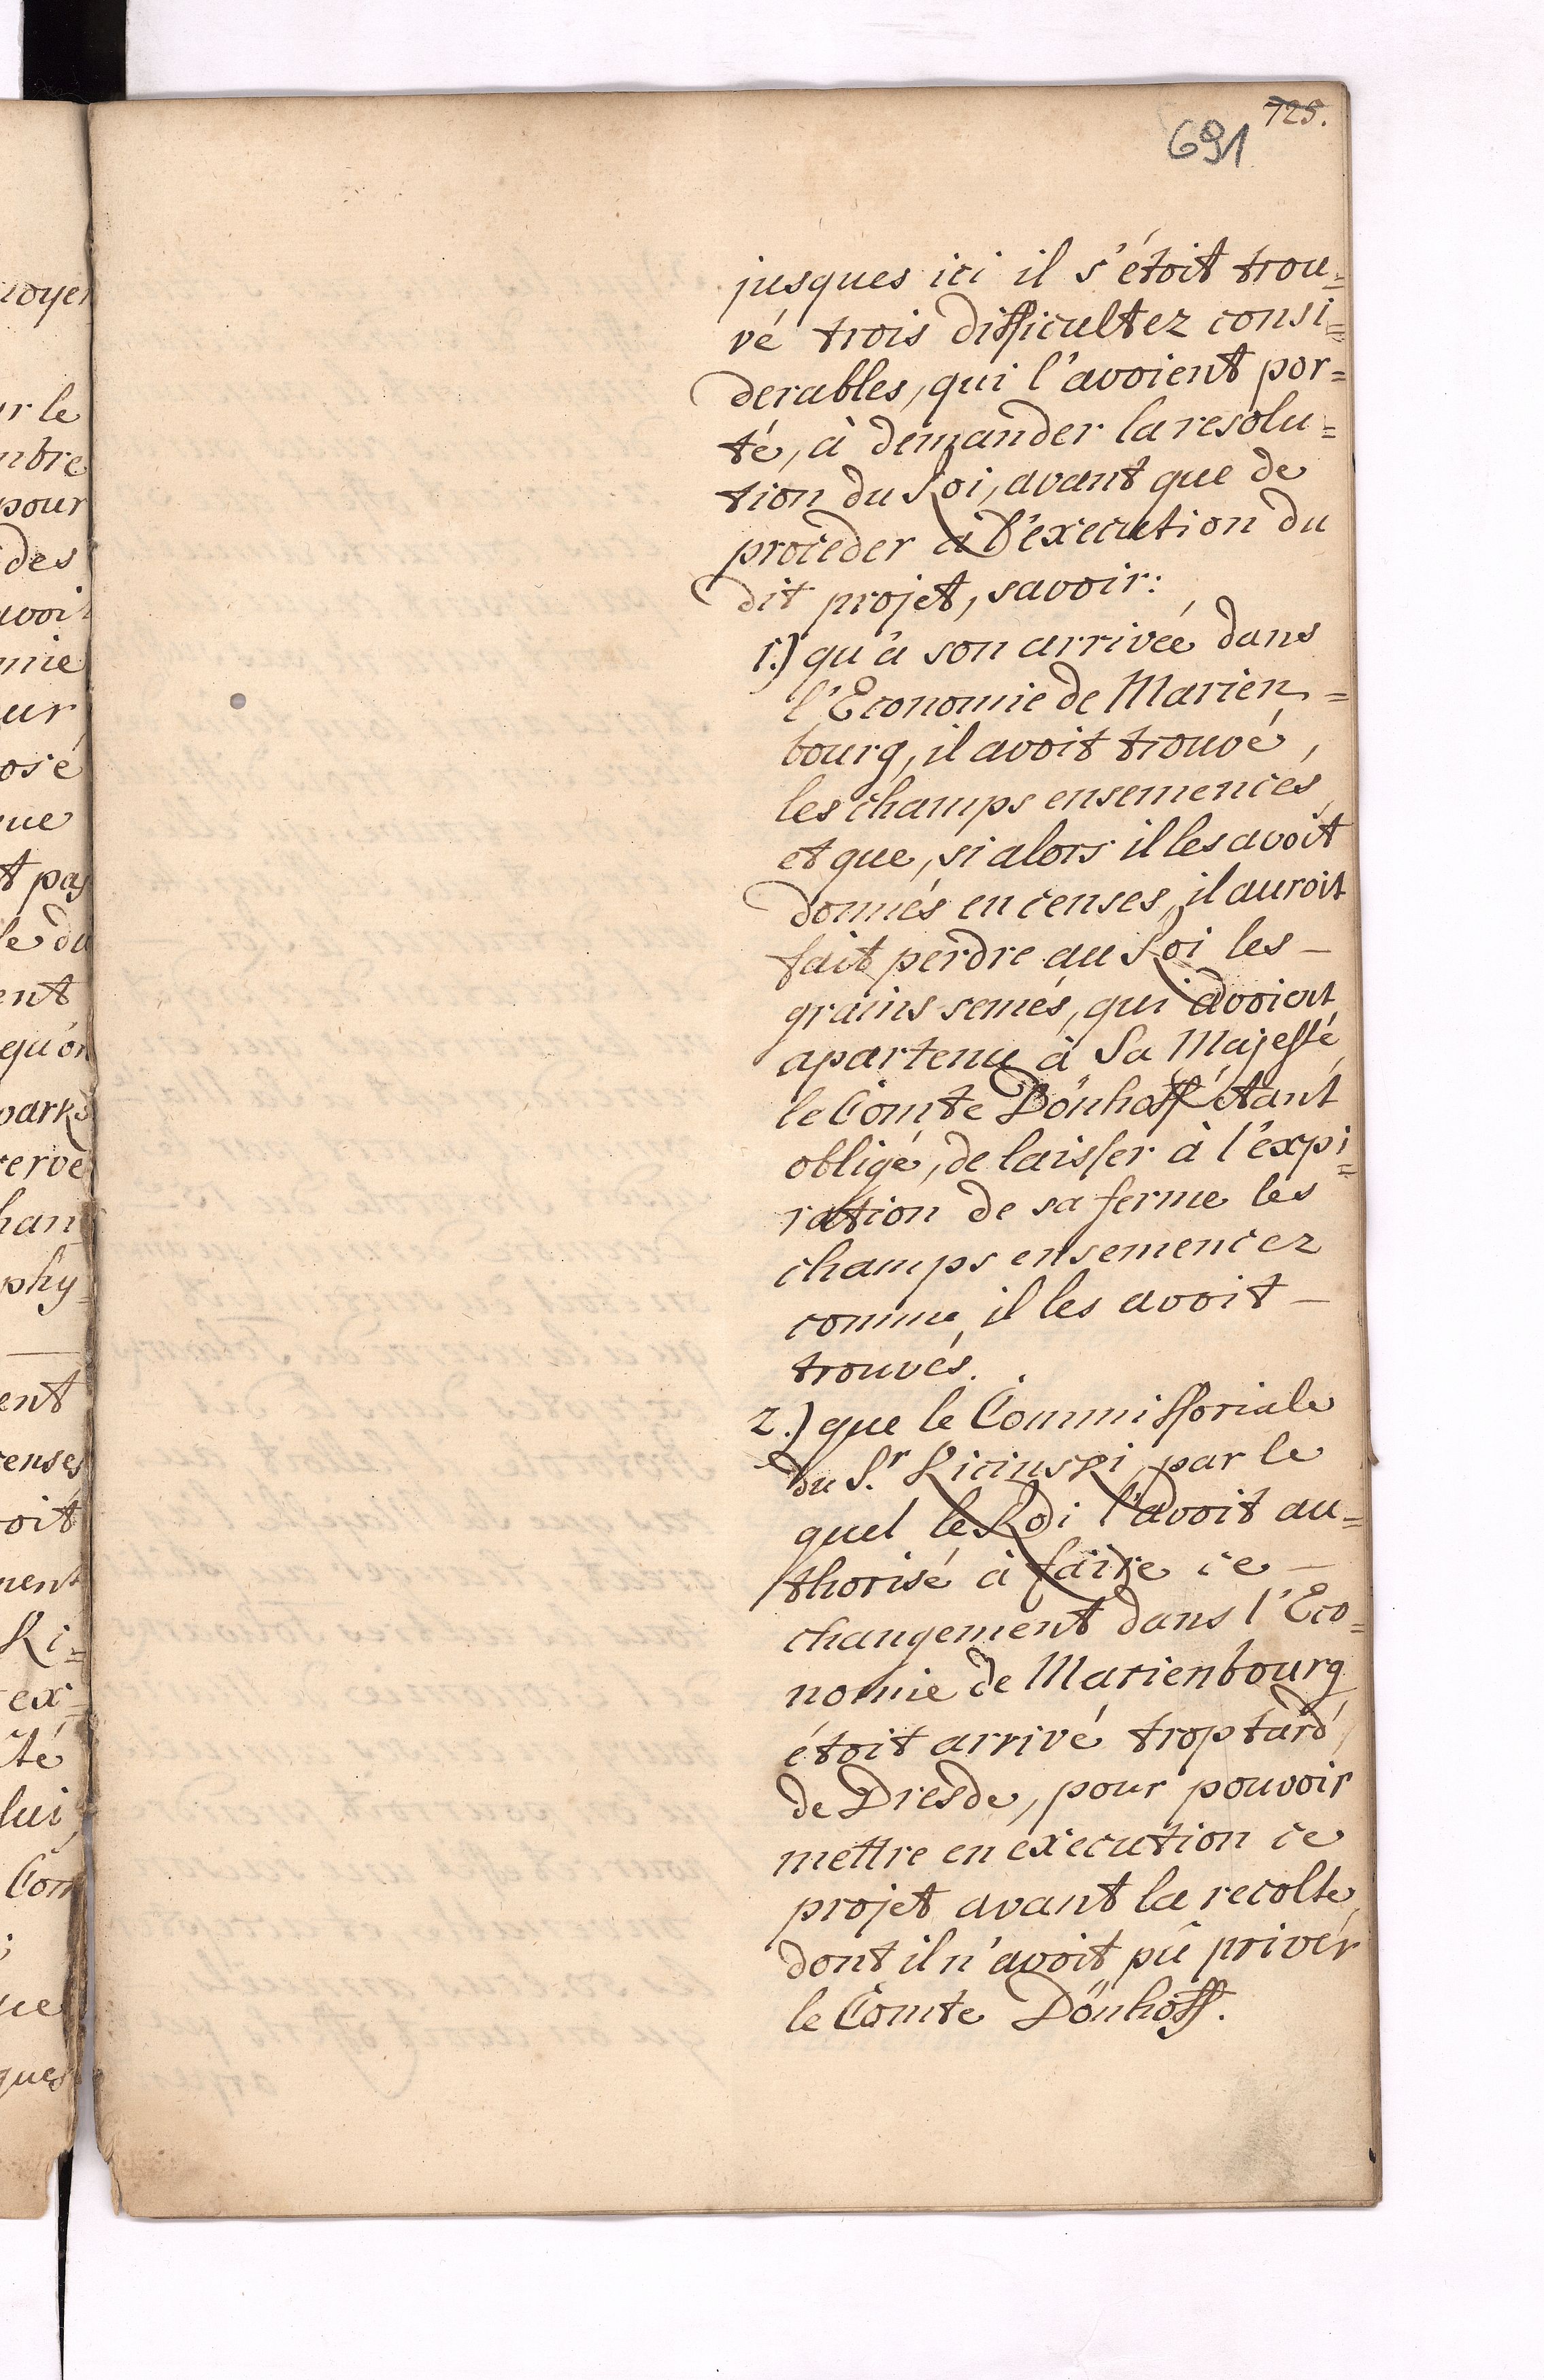 725.
691
jusques ici il s'étoit trou=
vé trois difficultez consi=
derables, qui l'avoient por=
té, à demander la resolu=
tion du Roi, avant que de
proceder à l'execution du
dit projet, savoir:
1.) qu'à son arrivée dans
l'Economie de Marien=
bourg, il avoit trouvé,
les champs ensemencés,
et que, si alors il les avoit
donnés en censes, il auroit
fait perdre au Roi les —
grains semés, qui avoient
apartenu à Sa Majesté,
le Comte Dönhoff étant
obligé, de laisser à l'expi=
ration de sa ferme les
champs ensemencez
comme il les avoit —
trouvés.
2.) que le Commissoriale
du S.r Kicinski, par le
quel le Roi l'avoit au=
thorisé à faire ce —
changement dans l'Eco=
nomie de Marienbourg
étoit arrivé trop tard,
de Dresde, pour pouvoir
mettre en execution ce
projet avant la recolte,
dont il n'avoit pû priver
le Comte Dönhoff.